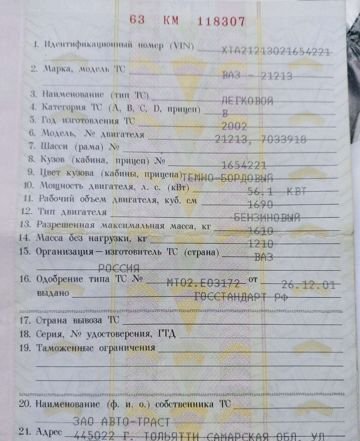 63 КМ 118307
1. Идентификационный номер (VIN) XTA21213021654221
2. Марка, модель ТС ВАЗ - 21213
3. Наименование (тип ТС) ЛЕГКОВОЙ
4. Категория ТС (А, В, С, D, прицеп) В
5. Год изготовления ТС 2002
6. Модель, № двигателя 21213, 7033918
7. Шасси (рама) №
8. Кузов (кабина, прицеп) № 1654221
9. Цвет кузова (кабины, прицепа) ТЕМНО-БОРДОВЫЙ
10. Мощность двигателя, л. с. (кВт) 56.1 КВТ
11. Рабочий объем двигателя, куб. см 1690
12. Тип двигателя БЕНЗИНОВЫЙ
13. Разрешенная максимальная масса, кг 1610
14. Масса без нагрузки, кг 1210
15. Организация—изготовитель ТС (страна) ВАЗ
РОССИЯ
16. Одобрение типа ТС № МТ02.Е03172 от 26.12.01
выдано ГОССТАНДАРТ РФ
17. Страна вывоза ТС
18. Серия, № удостоверения, ГТД
19. Таможенные ограничения
20. Наименование (ф. и. о.) собственника ТС
ЗАО АВТО-ТРАСТ
21. Адрес 445022 Г. ТОЛЬЯТТИ САМАРСКАЯ ОБЛ. УЛ